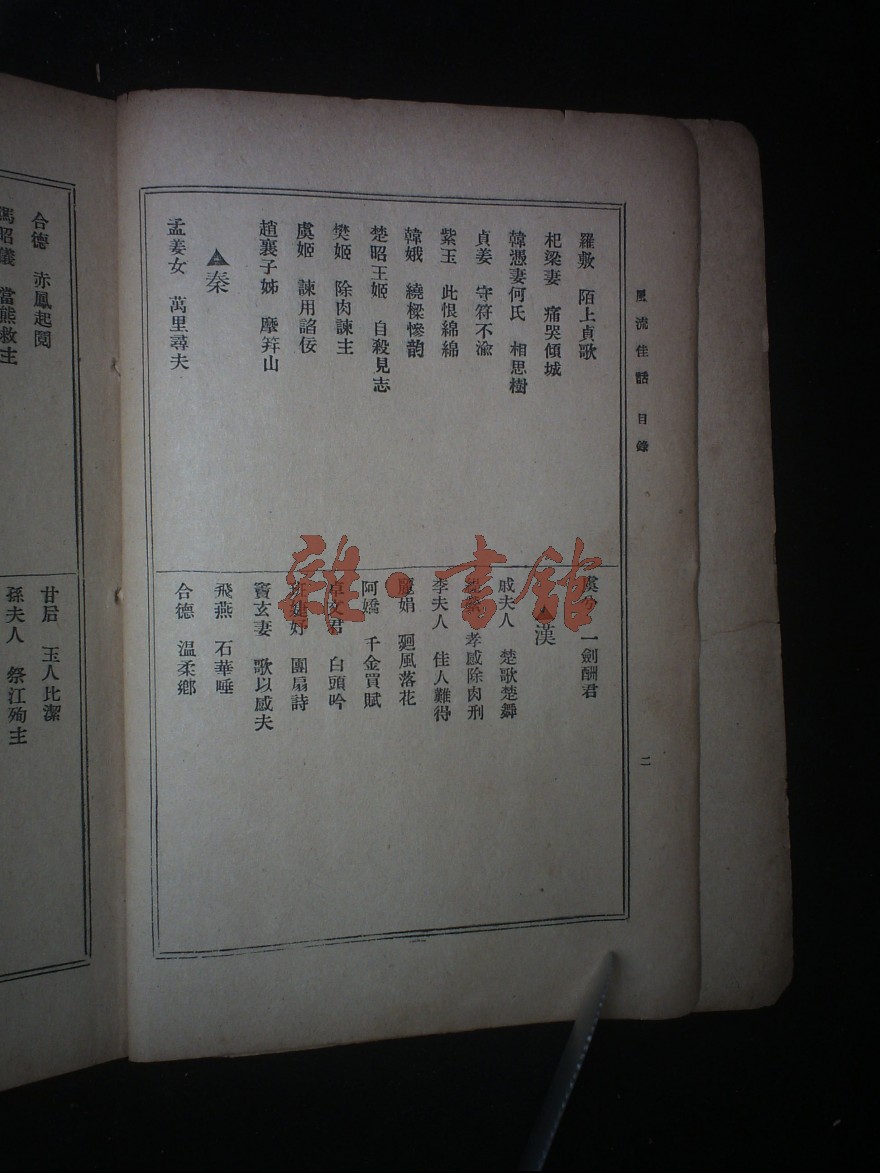 風流佳話 目錄
二
羅敷 陌上貞歌
杞梁妻 痛哭傾城
韓憑妻何氏 相思樹
貞姜 守符不渝
紫玉 此恨綿綿
韓娥 繞樑慘韵
楚昭王姬 自殺見志
樊姬 除肉諫主
虞姬 諫用諂佞
趙襄子姊 摩笄山
▲秦
孟姜女 萬里尋夫
虞兮 一劍酬君
▲漢
戚夫人 楚歌楚舞
緹縈 孝感除肉刑
李夫人 佳人難得
麗娟 廻風落花
阿嬌 千金買賦
卓文君 白頭吟
班婕妤 團扇詩
竇玄妻 歌以感夫
飛燕 石華唾
合德 溫柔鄉
合德 赤鳳起閱
馮昭儀 當熊救主
甘后 玉人比潔
孫夫人 祭江殉主
雜·書館